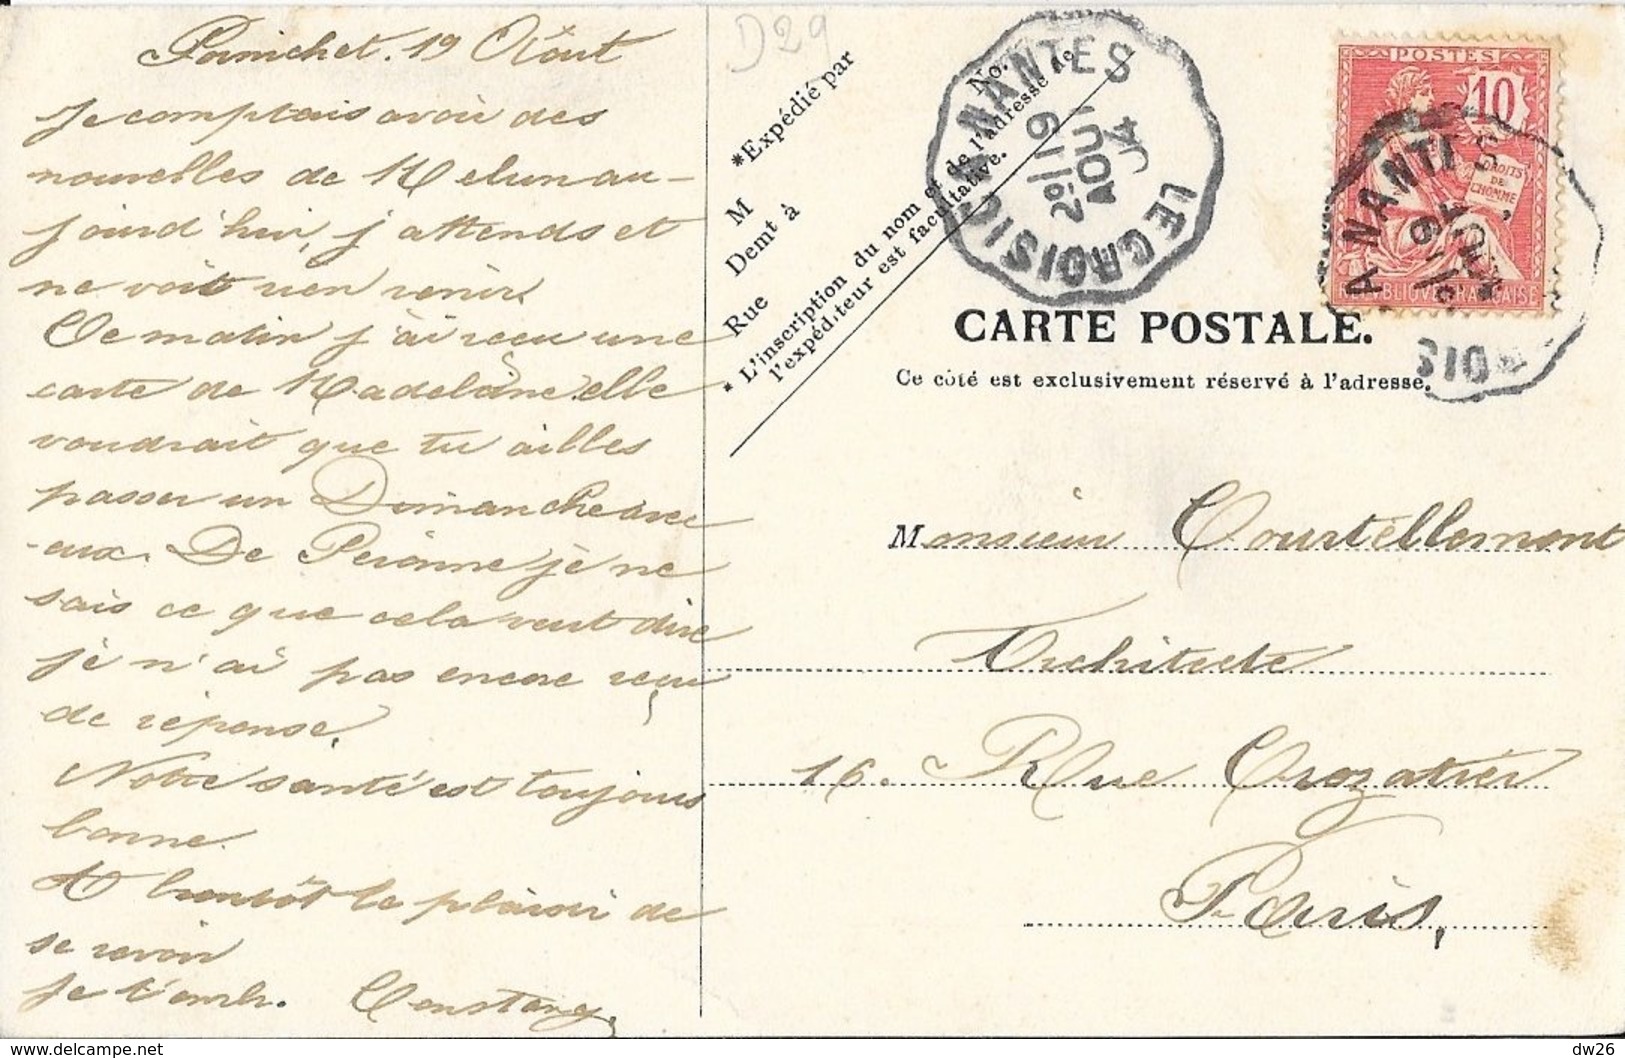 Pornichet. 19 Août
Je comptais avoir des
nouvelles de Melun au-
jourd'hui, j'attends et
ne voit rien venir.
Ce matin j'ai reçu une
carte de Madeleine elle
voudrait que tu ailles
passer un Dimanche avec
eux. De Péronne je ne
sais ce que cela veut dire
je n'ai pas encore reçu
de réponse.
Notre santé est toujours
bonne.
A bientôt le plaisir de
se revoir
Je t'emb.
D29
*Expédié par
M
Demt à
Rue
* L'inscription du nom et de l'adresse de
l'expéditeur est facultative.
No.
LE CROISIC A NANTES
2e/19
AOUT
04
POSTES
10
DROITS
DE
L'HOMME
REPUBLIQUE FRANÇAISE
A NANT
CARTE POSTALE.
Ce côté est exclusivement réservé à l'adresse.
Monsieur Courtellemont
Architecte
16. Rue Crozatier
Paris,
© www.delcampe.net
dw26